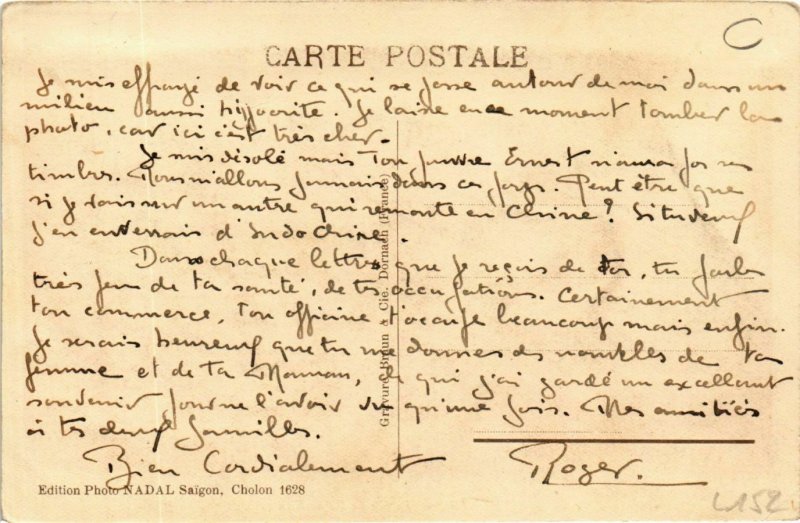 CARTE POSTALE
Je suis effrayé de voir ce qui se passe autour de moi dans un
milieu aussi hypocrite. Je laisse en ce moment tomber la
photo, car ici c'est très cher.
Je suis désolé mais ton pauvre Ernest n'aura pas ses
timbres. Nous n'allons jamais dans ces pays. Peut être que
si je vais sur un autre qui remonte en Chine? Si tu veux
j'en enverrais d'Indo Chine.
Dans chaque lettre que je reçois de toi, tu parles
très peu de ta santé, de tes occupations. Certainement
ton commerce, ton officine t'occupe beaucoup mais enfin.
Je serais heureux que tu me donnes des nouvelles de ta
femme et de ta Maman, de qui j'ai gardé un excellent
souvenir pour ne l'avoir vu qu'une fois. Mes amitiés
à tes deux familles.
Bien Cordialement Roger.
Gravure Braun & Cie, Dornach (France)
Edition Photo NADAL Saïgon, Cholon 1628
L152